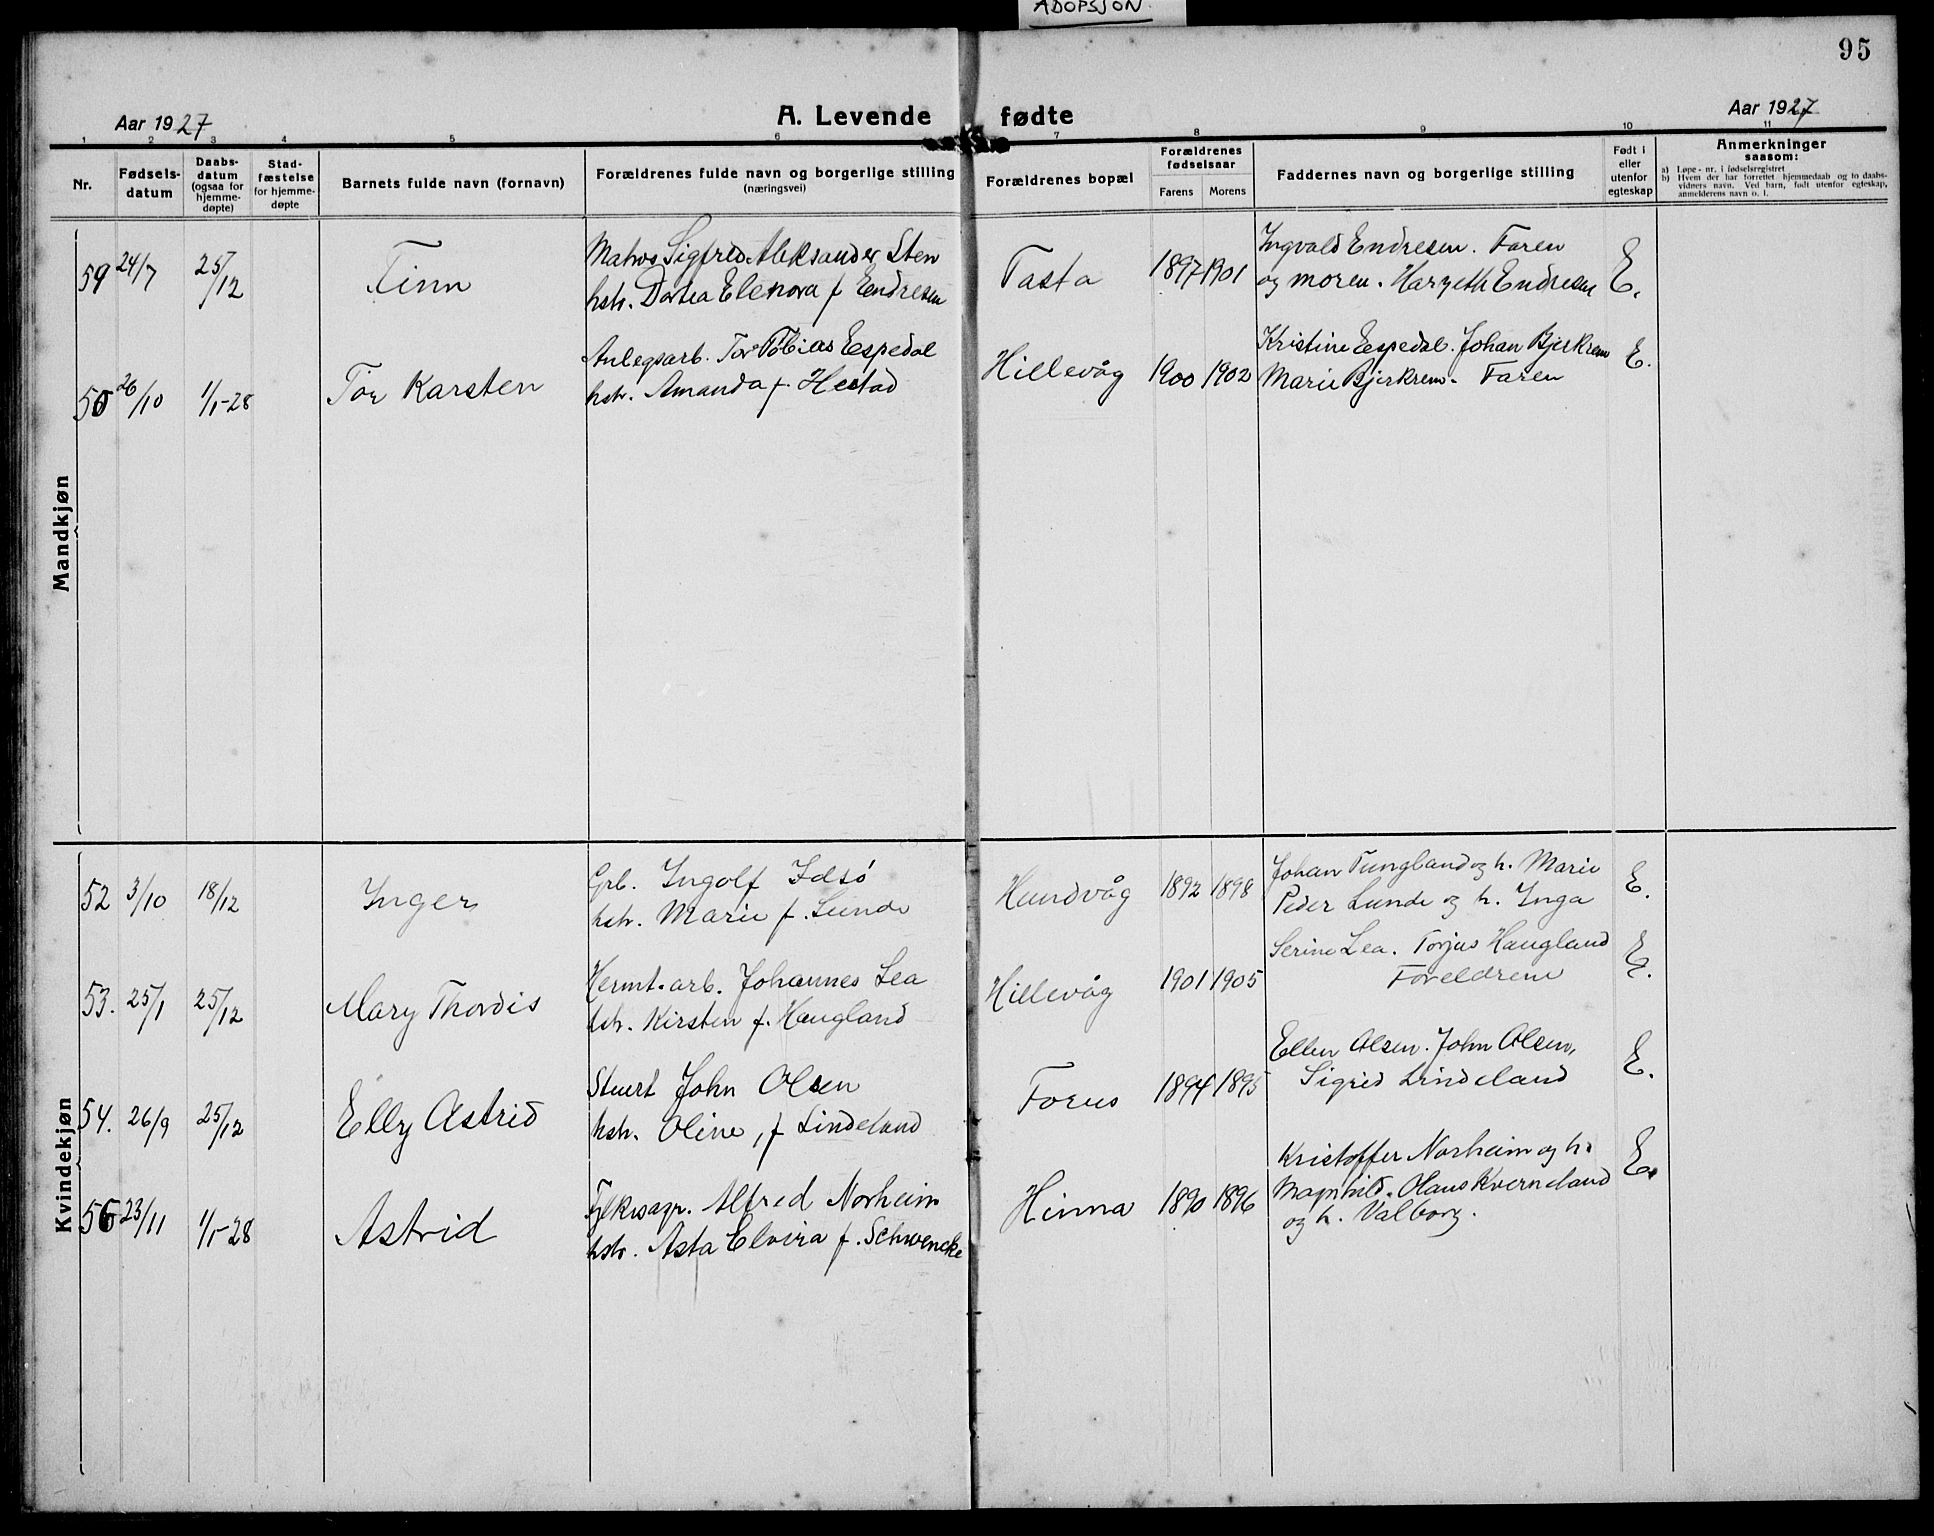 ADOPSJON.
95
Aar 1927
A. Levende fødte
Aar 1927
1 2 3 4 5 6 7 8 9 10 11
Nr.
Fødsels-
datum
Daabs-
datum
(ogsaa for
hjemme-
døpte)
Stad-
fæstelse
for hjemme-
døpte
Barnets fulde navn (fornavn)
Forældrenes fulde navn og borgerlige stilling
(næringsvei)
Forældrenes bopæl
Forældrenes
fødselsaar
Farens Morens
Faddernes navn og borgerlige stilling
Født i
eller
utenfor
egteskap
Anmerkninger
saasom:
a) Løpe-nr. i fødselsregistret
b) Hvem der har forrettet hjemmedaab og to daabs-
vidners navn. Ved barn, født utenfor egteskap,
anmelderens navn o. l.
Mandkjøn
59 24/7 25/12 Finn
Matros Sigfred Aleksander Sten
hstr. Dortea Elenora f Endresen
Tasta 1897 1901
Ingvald Endresen. Faren
og moren. Margeth Endresen
E.
50 26/10 1/1-28 Tor Karsten
Anlegsarb. Tor Tobias Espedal
hstr. Amanda f. Hestad
Hillevåg 1900 1902
Kristine Espedal. Johan Bjerkrem
Marie Bjerkrem. Faren
E.
Kvindekjøn
52 3/10 18/12 Inger
Grb. Ingolf Idsø
hstr. Marie f. Lunde
Hundvåg 1892 1898
Johan Tungland og h. Marie
Peder Lunde og h. Inga
E.
53. 25/1 25/12 Mary Thordis
Hermt.arb. Johannes Lea
hstr. Kirsten f. Haugland
Hillevåg 1901 1905
Serine Lea. Torjus Haugland
Foreldrene
E.
54. 26/9 25/12 Elly Astrid
Stuert John Olsen
hstr. Oline, f Lindeland
Forus 1894 1895
Ellen Olsen. John Olsen,
Sigrid Lindeland
E.
56 23/11 1/1-28 Astrid
Fylkesagr. Alfred Norheim
hstr. Asta Elvira f. Schwencke
Hinna 1890 1896
Kristoffer Norheim og h.
Magnhild. Olaus Kverneland
og h. Valborg.
E.